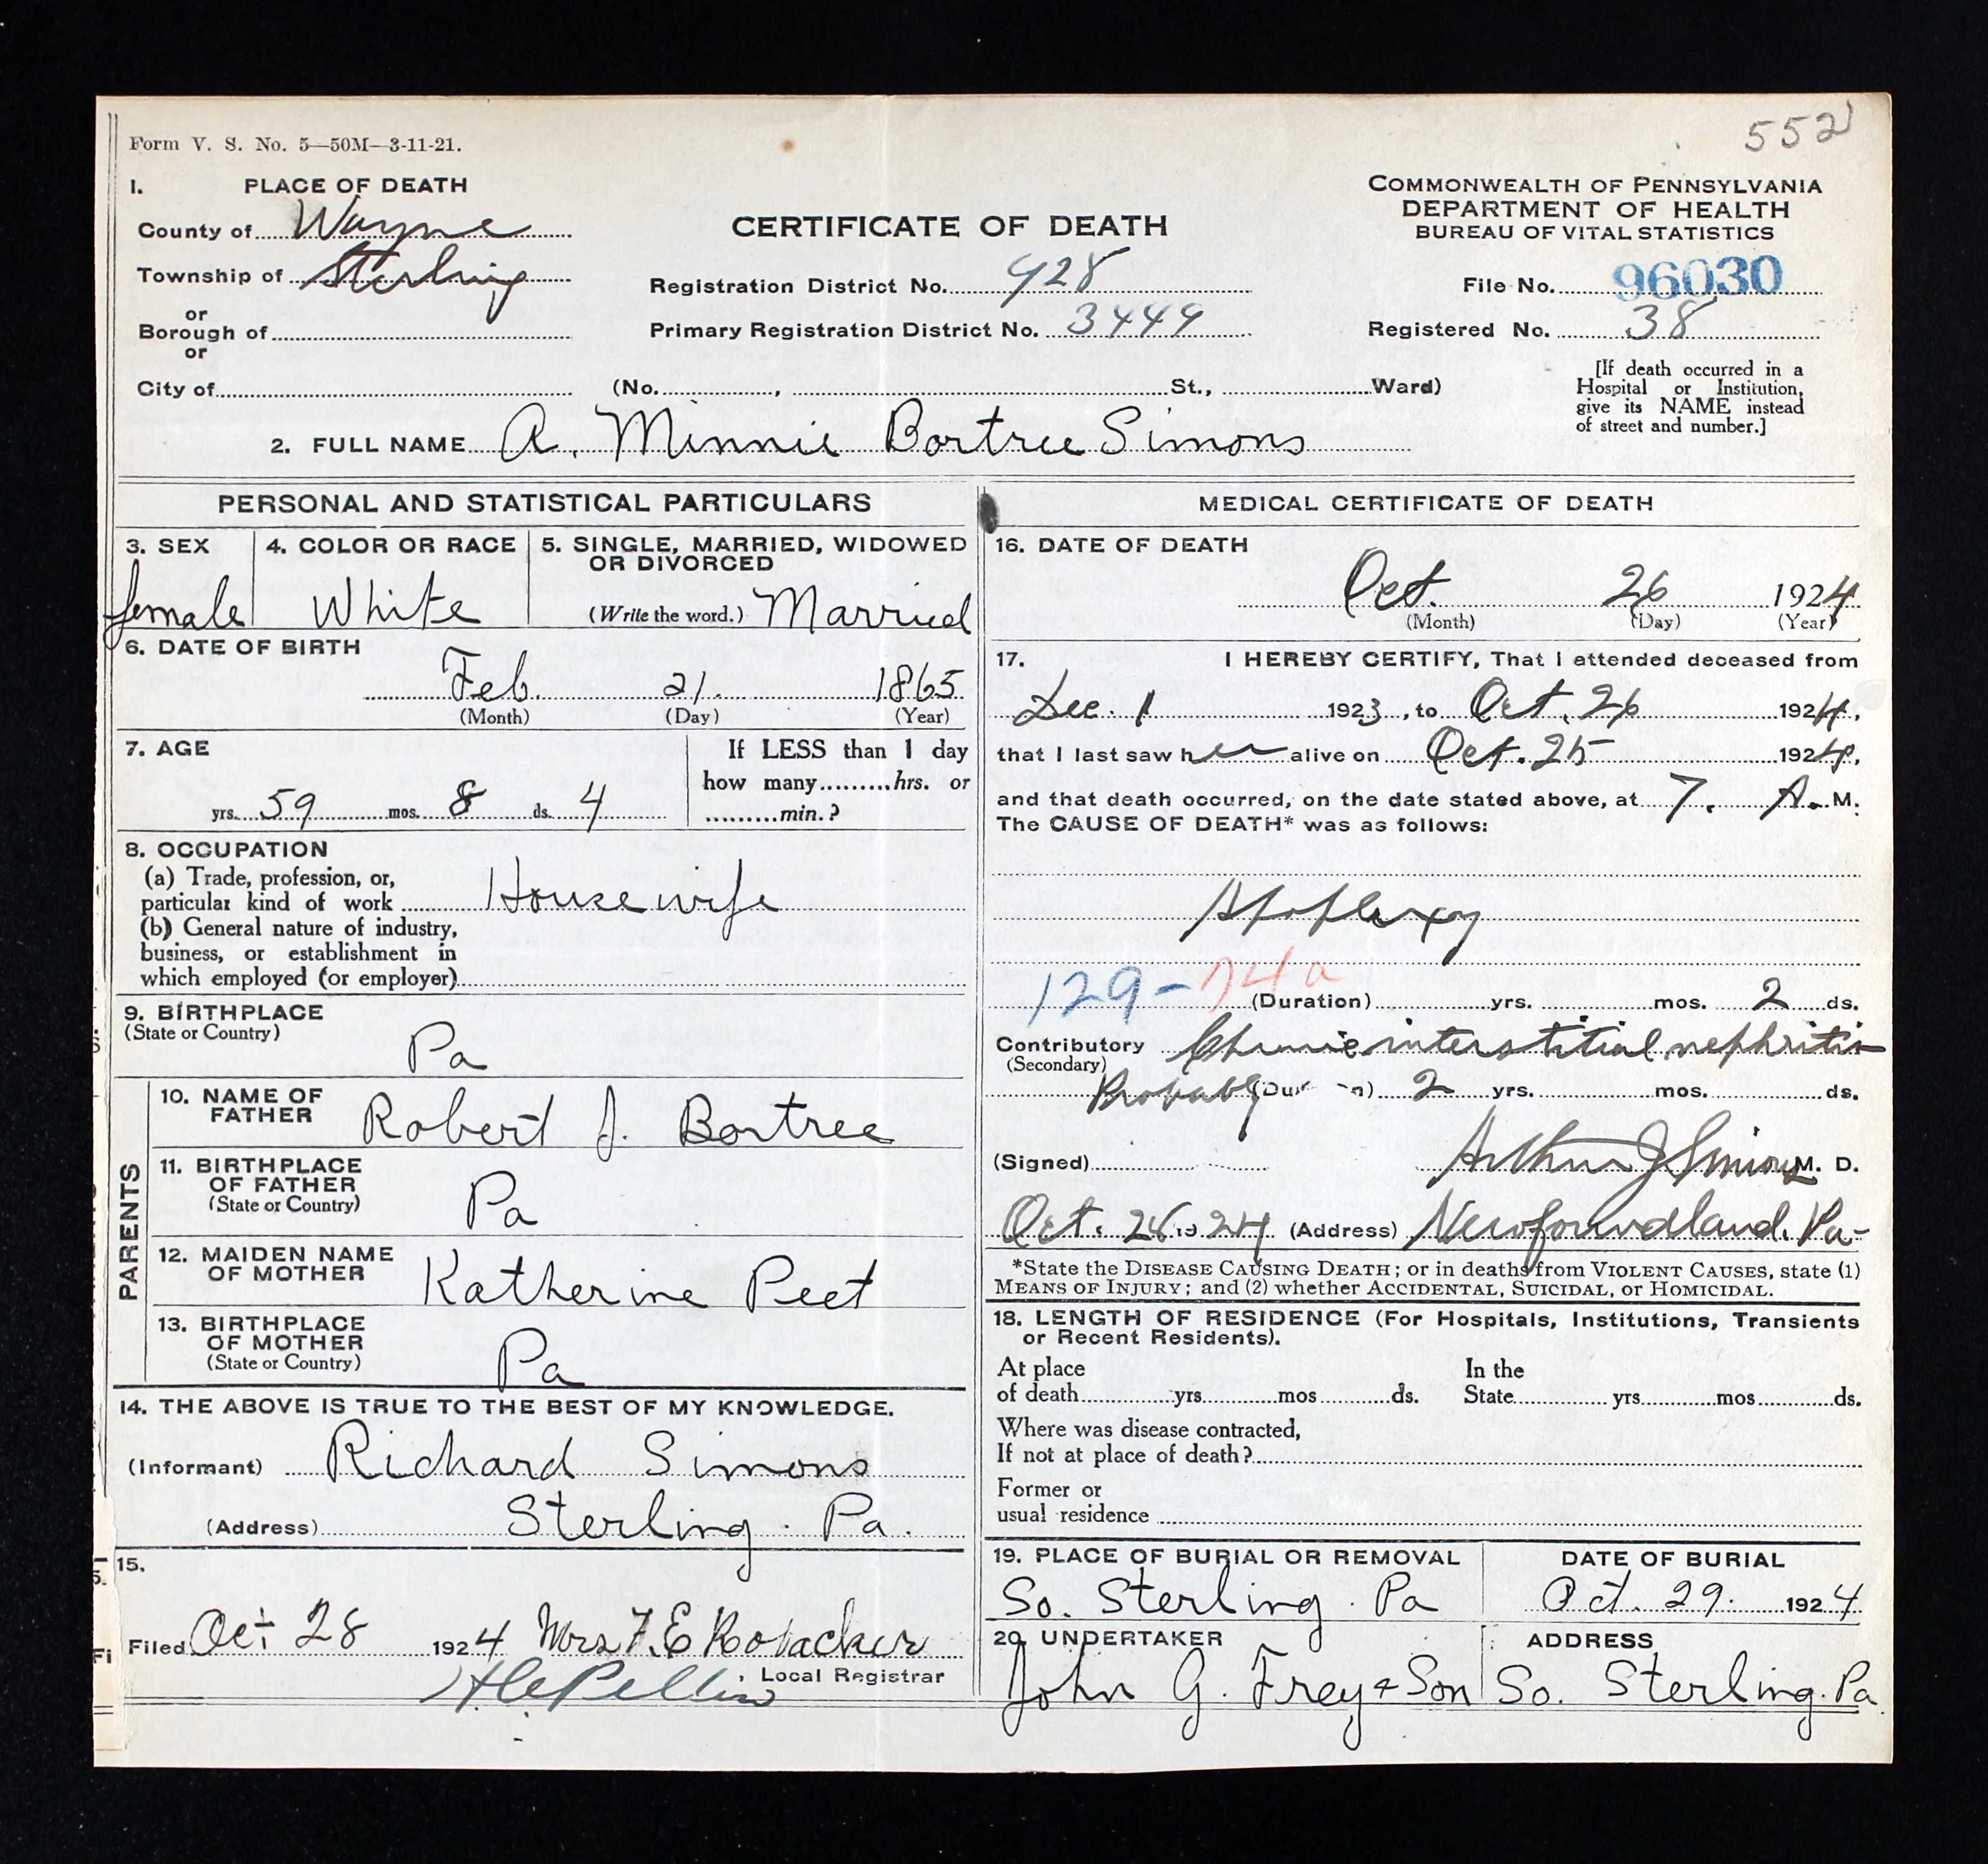 552
Form V. S. No. 5—50M—3-11-21.
1. PLACE OF DEATH
County of Wayne
Township of Sterling
or
Borough of
or
City of
CERTIFICATE OF DEATH
Registration District No. 928
Primary Registration District No. 3449
(No. , St., Ward)
COMMONWEALTH OF PENNSYLVANIA
DEPARTMENT OF HEALTH
BUREAU OF VITAL STATISTICS
File No. 96030
Registered No. 38
[If death occurred in a
Hospital or Institution,
give its NAME instead
of street and number.]
2. FULL NAME A. Minnie Bortree Simons
PERSONAL AND STATISTICAL PARTICULARS
3. SEX
female
4. COLOR OR RACE
White
5. SINGLE, MARRIED, WIDOWED
OR DIVORCED
(Write the word.) Married
6. DATE OF BIRTH
Feb. 21. 1865
(Month) (Day) (Year)
7. AGE
yrs. 59 mos. 8 ds. 4
If LESS than 1 day
how many hrs. or
min.?
8. OCCUPATION
(a) Trade, profession, or,
particular kind of work Housewife
(b) General nature of industry,
business, or establishment in
which employed (or employer)
9. BIRTHPLACE
(State or Country)
Pa
PARENTS
10. NAME OF
FATHER Robert J. Bortree
11. BIRTHPLACE
OF FATHER
(State or Country) Pa
12. MAIDEN NAME
OF MOTHER Katherine Peet
13. BIRTHPLACE
OF MOTHER
(State or Country) Pa
14. THE ABOVE IS TRUE TO THE BEST OF MY KNOWLEDGE.
(Informant) Richard Simons
(Address) Sterling. Pa.
15.
Filed Oct 28 1924 Mrs F. E Robacker
Local Registrar
MEDICAL CERTIFICATE OF DEATH
16. DATE OF DEATH
Oct. 26 1924
(Month) (Day) (Year)
17. I HEREBY CERTIFY, That I attended deceased from
Dec. 1 1923, to Oct. 26 1924,
that I last saw her alive on Oct. 25 1924,
and that death occurred, on the date stated above, at 7. A. M.
The CAUSE OF DEATH* was as follows:
Apoplexy
129-74a
(Duration) yrs. mos. 2 ds.
Contributory Chronic interstitial nephritis
(Secondary)
Probably (Du n) 2 yrs. mos. ds.
(Signed) Arthur J Simons M. D.
Oct. 28 1924 (Address) Newfoundland. Pa-
*State the DISEASE CAUSING DEATH; or in deaths from VIOLENT CAUSES, state (1)
MEANS OF INJURY; and (2) whether ACCIDENTAL, SUICIDAL, or HOMICIDAL.
18. LENGTH OF RESIDENCE (For Hospitals, Institutions, Transients
or Recent Residents).
At place
of death yrs. mos ds.
In the
State yrs. mos ds.
Where was disease contracted,
If not at place of death?
Former or
usual residence
19. PLACE OF BURIAL OR REMOVAL
So. Sterling. Pa
DATE OF BURIAL
Oct. 29. 1924
20. UNDERTAKER
John G. Frey & Son
ADDRESS
So. Sterling. Pa